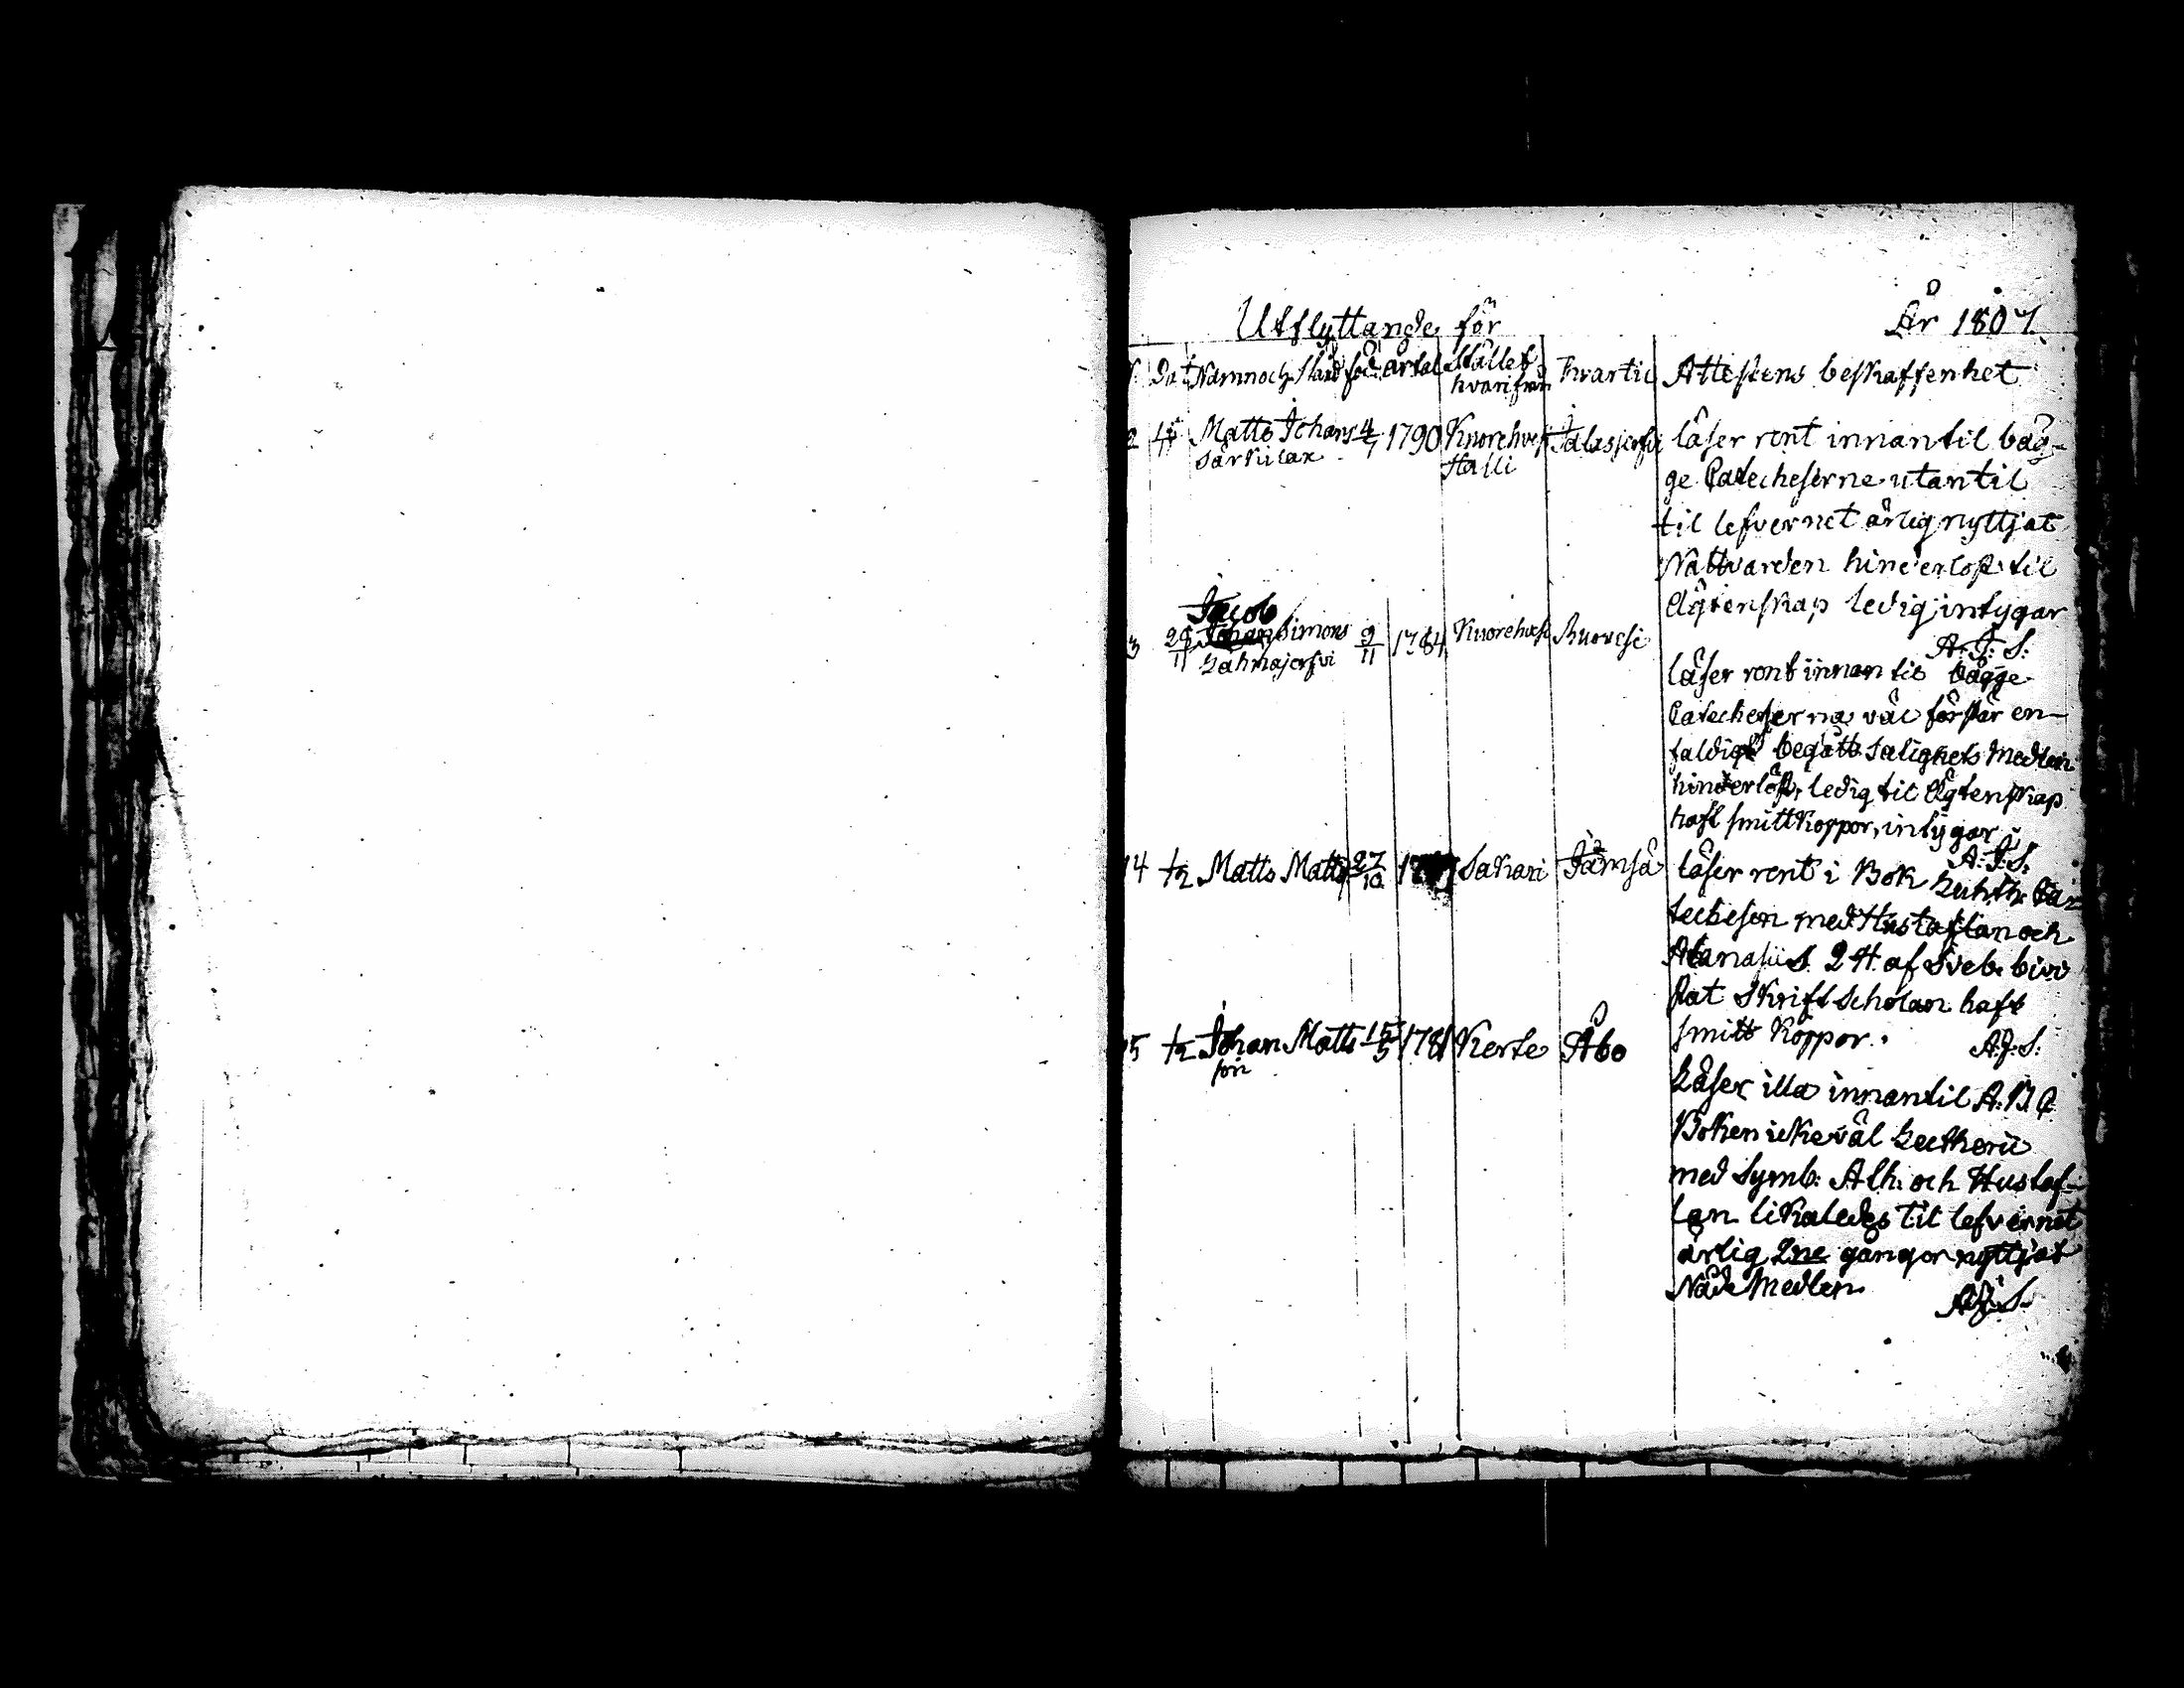 Utflyttande för År 1807
Dat Namn och Stånd föd: årtal Stället hvarifrån hvartil Attestens beskaffenhet
2 Matts Johans 4/7 1790 Kuorehvesi Jalasjerfvi läser rent innantil båg-
Särkilax Halli
ge Catecheserne utantil
til lefvernet ärlig nyttjat
Nattvarden hinderlöst til
Ägtenskap ledig intygar
A: J: S:
Jacob
3 29/11 Johan Simons 9/11 1784 Kuorehvesi Ruovesi
Lahnajerfvi
läser rent innan til bägge
Catecheserna väl förstår en-
faldigt begått Salighets Medlen
hinderlöst, ledig til Ägtenskap
haft smittkoppor, intygar
A: J: S:
14 1/12 Matts Matts 27/10 Sakari Jämsä läser rent i Bok Luth: Ca-
techesen med Hustaflan och
Atanasii S. 2 H. af Sveb.
Cat Skrift Scholan haft
smitt Koppor. A: J: S:
15 1/12 Johan Matts 15/5 1781 Kerte Åbo
son
Läser illa innantil A. B. C
Boken icke väl Lutheri
med Symb: Ath: och Hustaf-
lan likaledes til lefvernet
ärlig 2ne gångor nyttjat
Nåde Medlen
A: J: S.